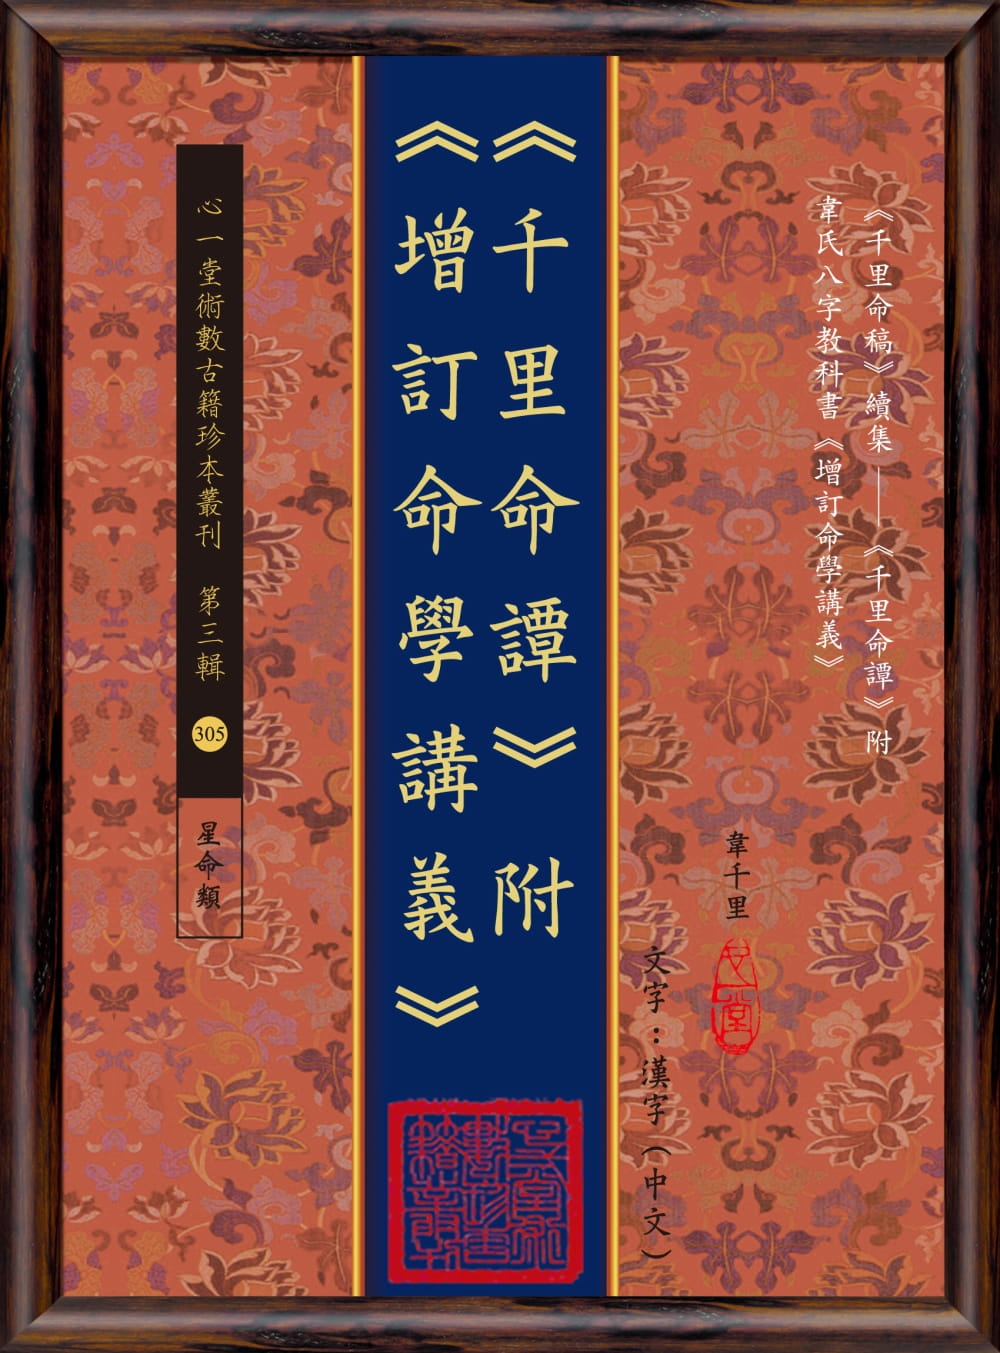 《千里命稿》續集——《千里命譚》附
韋氏八字教科書《增訂命學講義》
韋千里
文字：漢字（中文）
《千里命譚》附
《增訂命學講義》
心一堂術數古籍珍本叢刊 第三輯 305
星命類